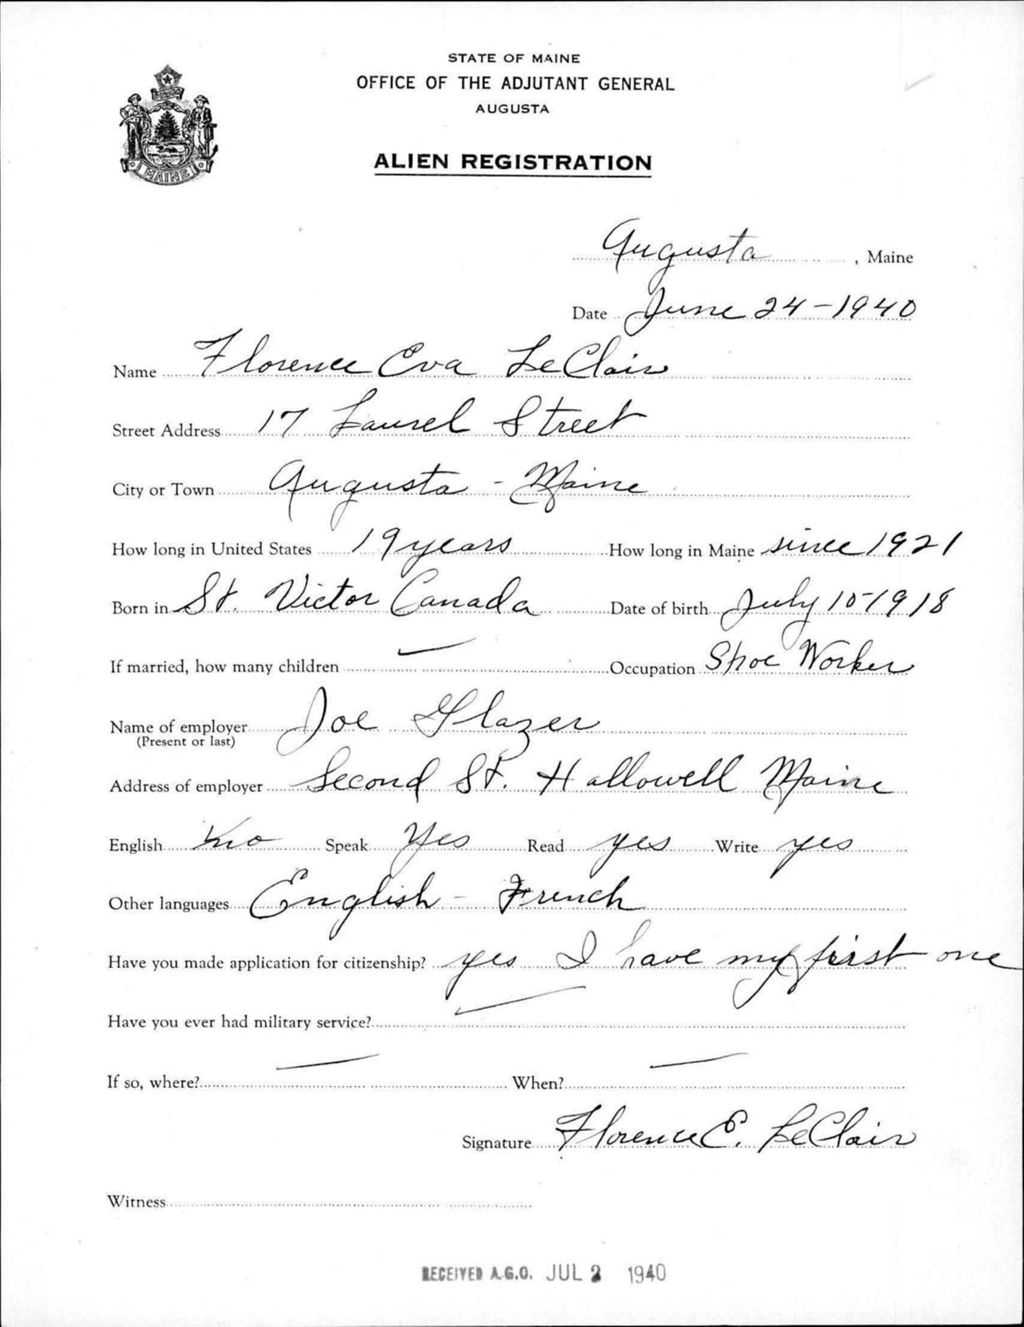 STATE OF MAINE
OFFICE OF THE ADJUTANT GENERAL
AUGUSTA
ALIEN REGISTRATION
MAINE
Augusta, Maine
Date June 24-1940
Name Florence Eva LeClair
Street Address 17 Laurel Street
City or Town Augusta - Maine
How long in United States 19 years How long in Maine since 1921
Born in St. Victor Canada Date of birth July 10-1918
If married, how many children — Occupation Shoe Worker
Name of employer Joe Glazer
(Present or last)
Address of employer Second St. Hallowell Maine
English no Speak Yes Read yes Write yes
Other languages English - French
Have you made application for citizenship? yes I have my first one
Have you ever had military service? —
If so, where? — When? —
Signature Florence E. LeClair
Witness
RECEIVED A.G.O. JUL 2 1940